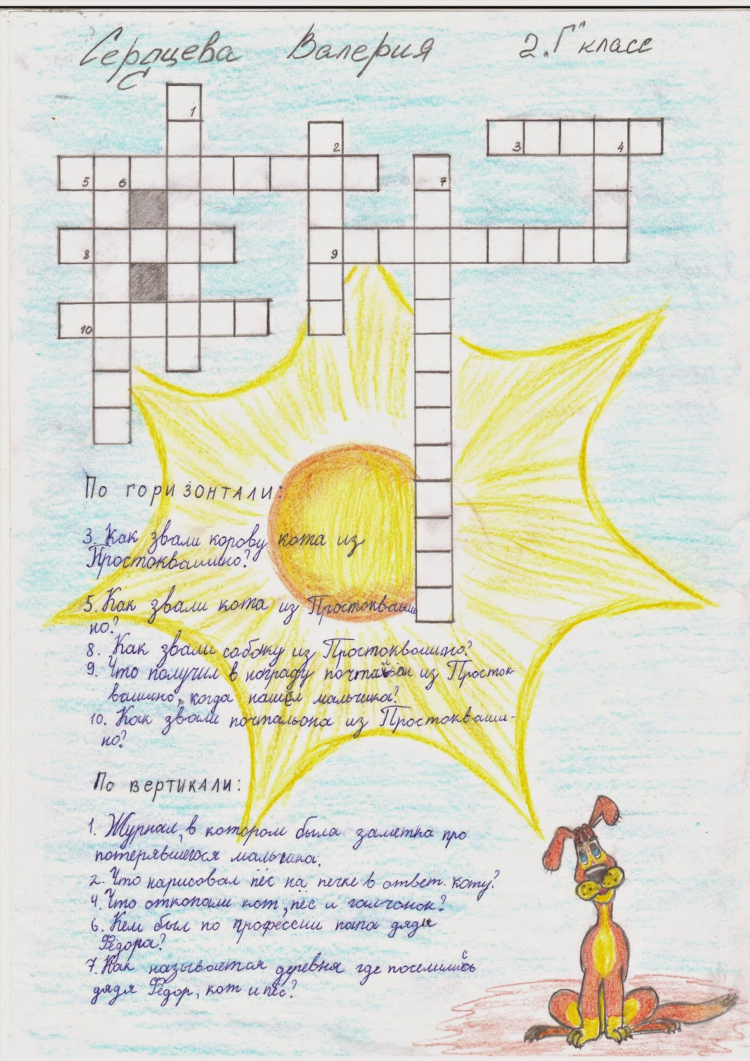 Сердцева Валерия 2 "Г" класс
1
2
3 4
5 6 7
8 9
10
По горизонтали:
3. Как звали корову кота из
Простоквашино?
5. Как звали кота из Простокваши
но?
8. Как звали собаку из Простоквашино?
9. Что получил в награду почтальон из Просток
вашино, когда нашёл мальчика?
10. Как звали почтальона из Простокваши-
но?
По вертикали:
1. Журнал, в котором была заметка про
потерявшегося мальчика.
2. Что нарисовал пёс на печке в ответ коту?
4. Что откопали кот, пёс и галчонок?
6. Кем был по профессии папа дяди
Фёдора?
7. Как называется деревня где поселились
дядя Фёдор, кот и пёс?